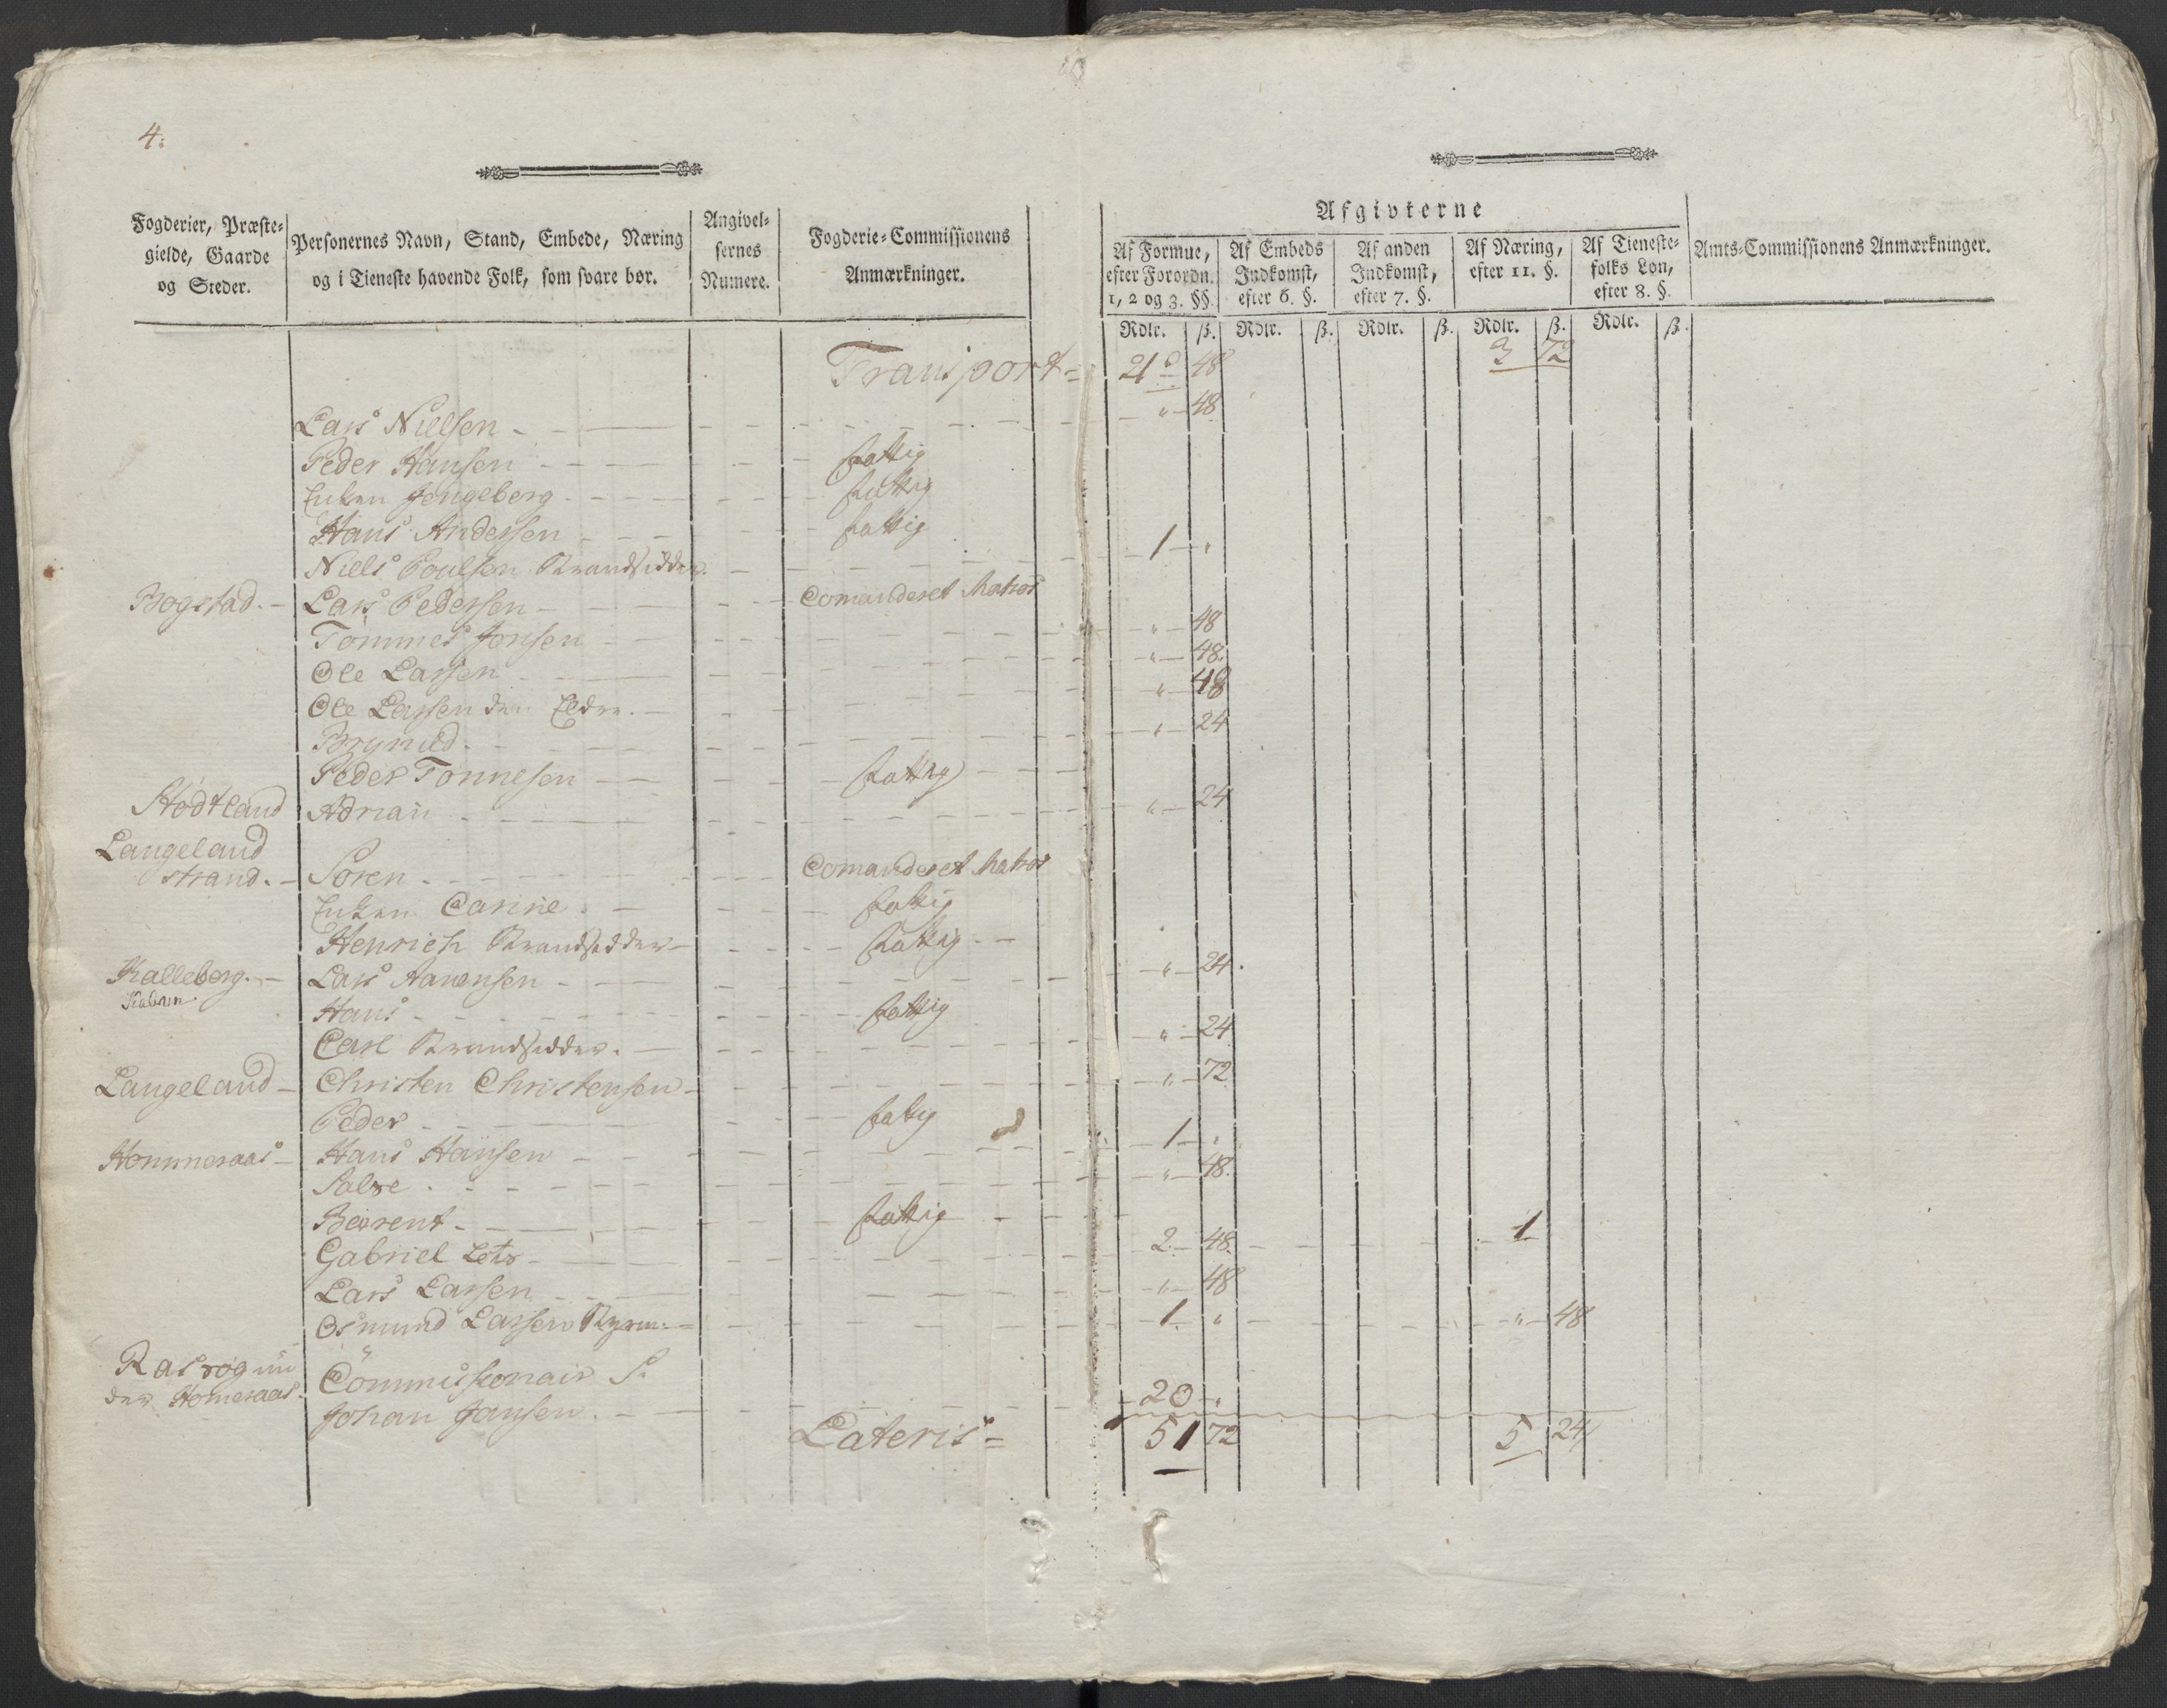 4.
Fogderier, Præste-
gielde, Gaarde
og Steder.
Personernes Navn, Stand, Embede, Næring
og i Tieneste havende Folk, som svare bør.
Angivel-
sernes
Numere.
Fogderie-Commissionens
Anmærkninger.
Afgivterne
Af Formue,
efter Forordn.
1, 2 og 3. §§.
Af Embeds
Indkomst,
efter 6. §.
Af anden
Indkomst,
efter 7. §.
Af Næring,
efter 11. §.
Af Tieneste-
folks Løn,
efter 8. §.
Amts-Commissionens Anmærkninger.
Rdlr. ß. Rdlr. ß. Rdlr. ß. Rdlr. ß. Rdlr. ß.
Transport = 21 48 3 72
Lars Nielsen - " 48
Peder Hansen - fattig
Enken Jengeberg - fattig
Hans Andersen - fattig
Niels Poulsen Strandsidder. 1 "
Bogstad. - Lars Pedersen - Comanderet Matros
Tommes Jonsen " 48
Ole Larsen " 48.
Ole Larsen den Eldre. " 48
Brynild. " 24
Peder Tonnesen - fattig
Stodtland Adrian " 24
Langeland
strand. - Soren - Comanderet Matros
Enken Carine. - fattig
Henrich Strandsidder - fattig
Kalleberg. - Lars Aanensen - " 24.
Hans - fattig
Carl Strandsidder. - " 24
Langeland - Christen Christensen - " 72
Peder - fattig
Hommeraas - Hans Hansen - 1 "
Salve " 48.
Beerent - fattig
Gabriel Lots - 2 48. 1
Lars Larsen " 48
Osmund Larsen 1 " " 48
Rasvog un
der Homeraas. Commissionair S.
Johan Jansen. 20 "
Lateris = 51 72 5 24